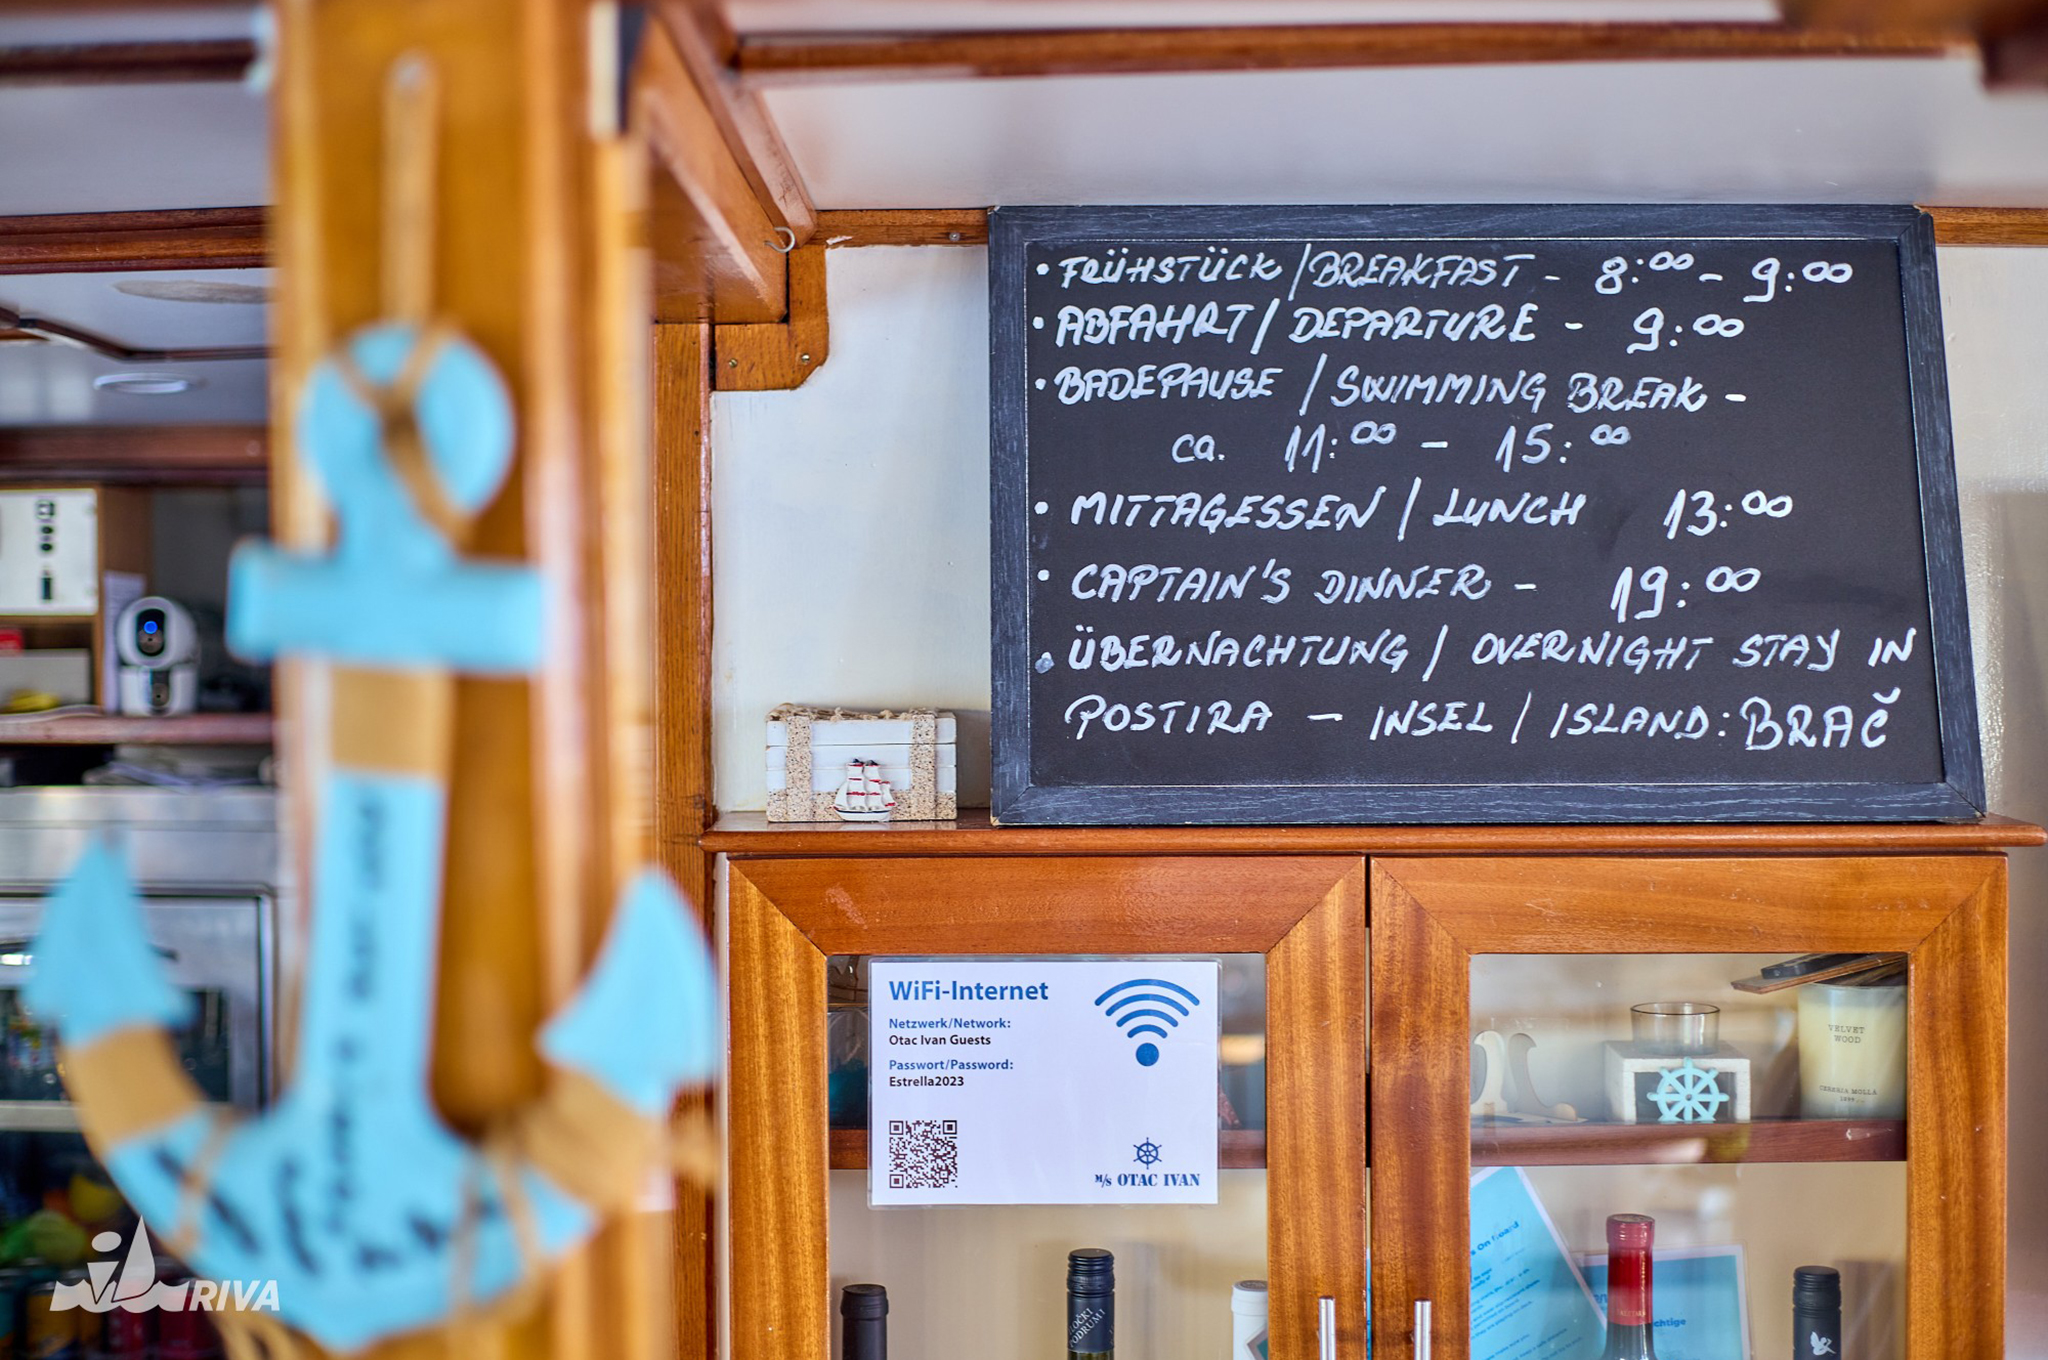 • FRÜHSTÜCK / BREAKFAST - 8:00 - 9:00
• ABFAHRT / DEPARTURE - 9:00
• BADEPAUSE / SWIMMING BREAK -
ca. 11:00 - 15:00
• MITTAGESSEN / LUNCH 13:00
• CAPTAIN'S DINNER - 19:00
• ÜBERNACHTUNG / OVERNIGHT STAY IN
POSTIRA - INSEL / ISLAND: BRAČ
WiFi-Internet
Netzwerk/Network:
Otac Ivan Guests
Passwort/Password:
Estrella2023
M/S OTAC IVAN
VELVET
WOOD
CERERIA MOLLA
1899
On Board
RIVA